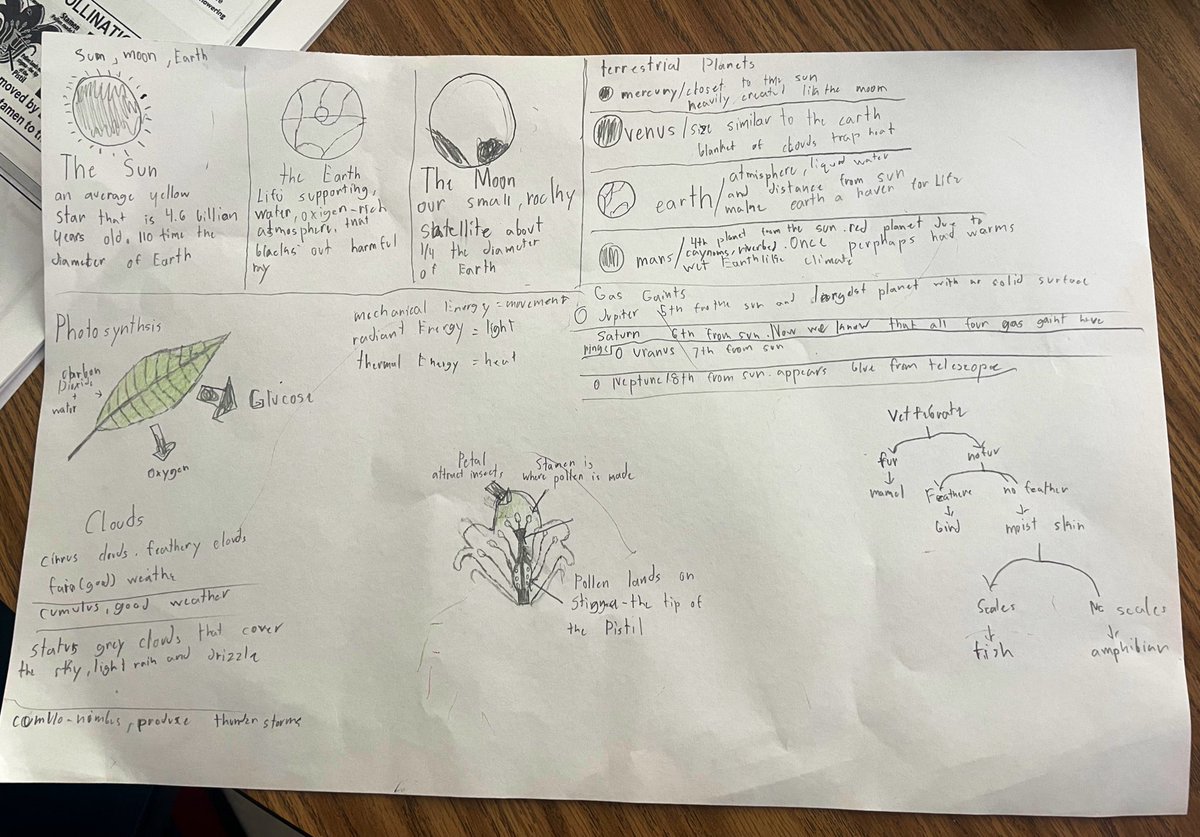 OLLINATI
Stamen
Pistil
owering
moved by
tamen to th
Sum, moon, Earth
The Sun
an average yellow
star that is 4.6 billion
years old. 110 time the
diameter of Earth
the Earth
Life supporting,
water, oxigen-rich
atmosphere, that
blacks out harmful
ray
The Moon
our small, rockhy
satellite about
1/4 the diameter
of Earth
terrestrial Planets
mercuny/closet to the sun
heavily created like the moom
venus/size similar to the earth
blanket of clouds trap heat
earth/atmisphere, liquid water
and distance from sun
make earth a haven for life
mans/4th planet from the sun. red planet Due to
caynoms, riverbed. Once perphaps had warms
wet Earthlike climate
Gas Gaints
Jupiter 5th fro the sun and largest planet with no solid surface
Saturn 6th from sun. Now we know that all four gas gaint have
rings
Uranus 7th from sun
Neptune/8th from sun. appears blue from telescope
Photosynthsis
carbon
Dioxide
+
water
Glucose
Oxygen
mechanical Energy = movement
radiant Energy = light
thermal Energy = heat
Clouds
cirrus clouds. feathery clouds
fare(good) weathe
cumulus, good weather
status grey clouds that cover
the sky, light rain and drizzle
comulo-nimbus, produce thunder storms
Petal
attract insects
Stamen is
where pollen is made
Pollen lands on
stigma-the tip of
the Pistil
Vettebrate
fur
no fur
mamel
Feathere
no feather
bird
moist skin
Scales
No scales
fish
amphibian